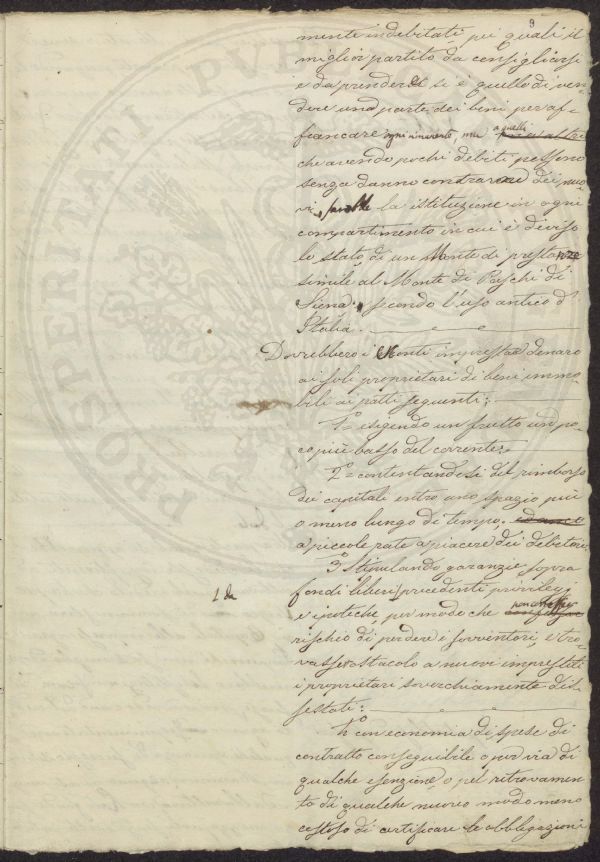 9
mente indebitati pei quali il
miglior partito da consigliarsi
e da prendersi si è quello di ven-
dere una parte dei beni per af-
francare ogni rimanente, ma a quelli
che avendo pochi debiti possono
senza danno contrarne dei nuo-
vi, la istituzione in ogni
compartimento in cui è diviso
lo stato di un Monte di prestanze
simile al Monte di Paschi di
Siena, secondo l'uso antico d'
Italia.
Dovrebbero i Monti imprestar denaro
ai soli proprietari di beni immo-
bili ai patti seguenti:
1º esigendo un frutto un po-
co più basso del corrente:
2º contentandosi del rimborso
dei capitali entro uno spazio più
o meno lungo di tempo, ed anco
a piccole rate a piacere dei debitori
3º Stipulando garanzie sopra
fondi liberi precedenti privilegi
1 da
e ipoteche, per modo che non
rischio di perdere i sovventori, e tro-
vasse ostacolo a nuovi imprestiti
i proprietari soverchiamente dis-
sestati:
4º con economia di spese di
contratto conseguibile o per via di
qualche esenzione, o pel ritrovamen-
to di qualche nuovo modo meno
costoso di certificare le obbligazioni
PIORVM
PVBLIC